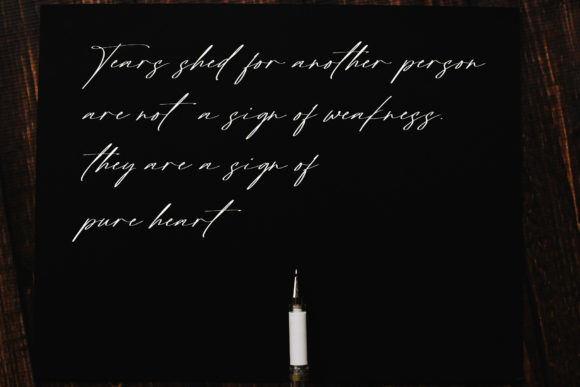 Tears shed for another person
are not a sign of weakness.
they are a sign of
pure heart